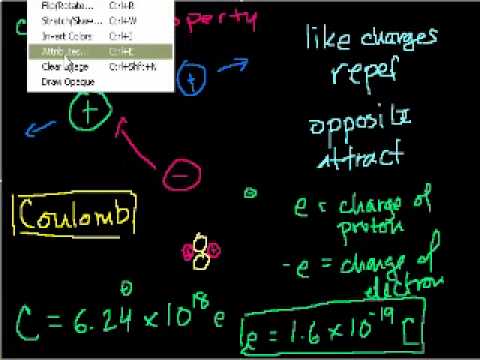 Flip/Rotate... Ctrl+R
Stretch/Skew... Ctrl+W
Invert Colors Ctrl+I
Attributes... Ctrl+E
Clear Image Ctrl+Shft+N
Draw Opaque
property
like charges
repel
opposite
attract
+
+
−
Coulomb
e = charge of
proton
-e = charge of
electron
C = 6.24 × 10^18 e
e = 1.6 × 10^-19 C